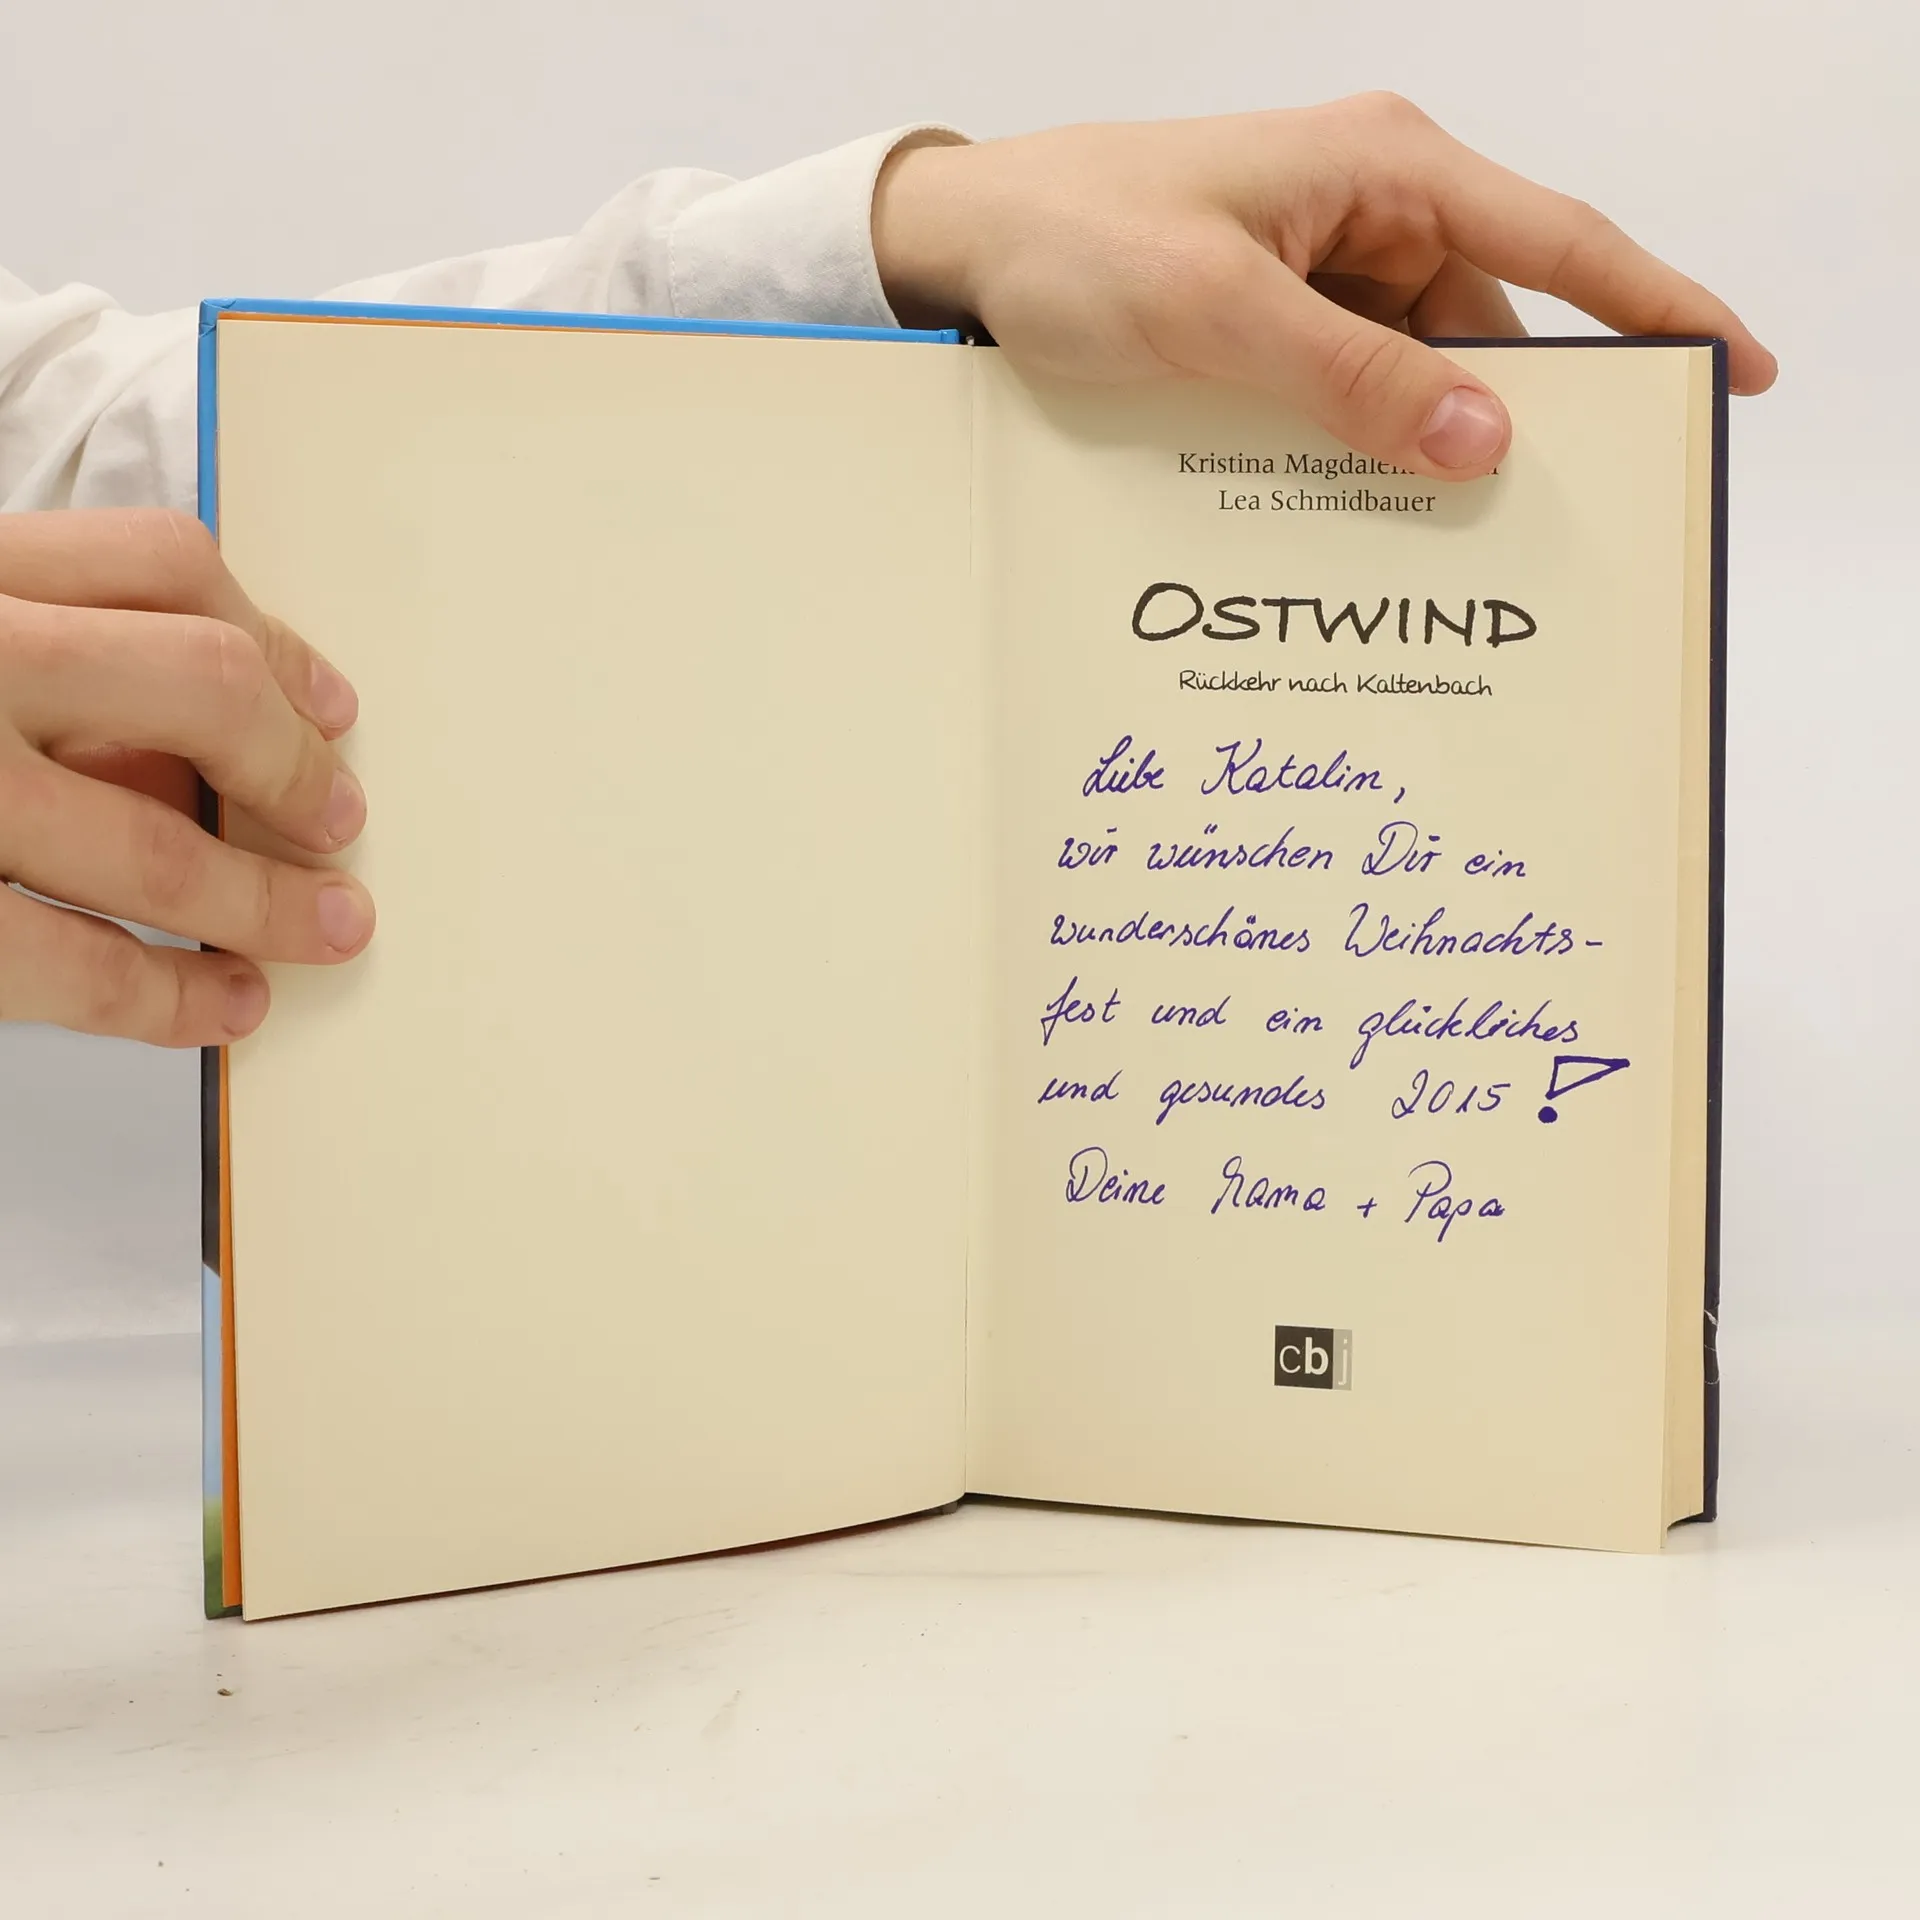 Kristina Magdalen
Lea Schmidbauer
OSTWIND
Rückkehr nach Kaltenbach
Liebe Katalin,
wir wünschen Dir ein
wunderschönes Weihnachts-
fest und ein glückliches
und gesundes 2015!
Deine Mama + Papa
cbj